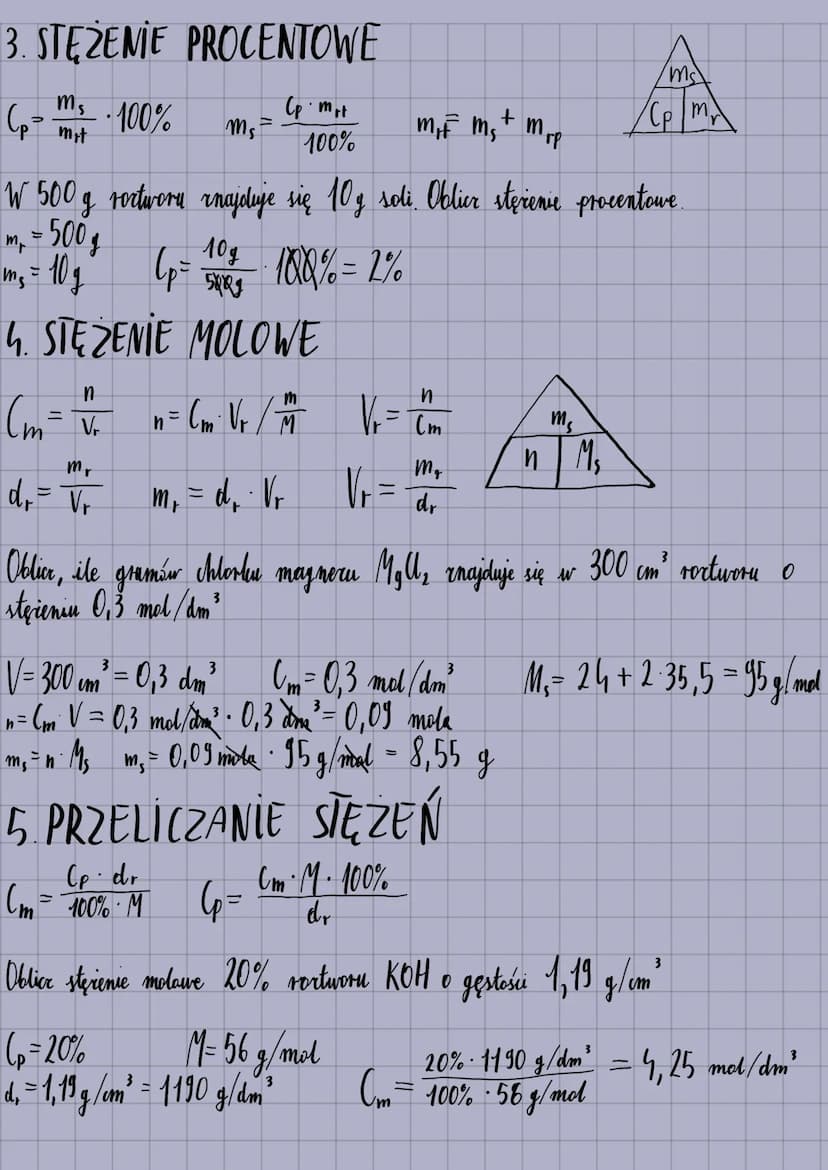 3. STĘŻENIE PROCENTOWE
Cp = ms/mrt · 100% ms = Cp · mrt/100% mrt = ms + mrp
ms
Cp | mr
W 500 g roztworu znajduje się 10 g soli. Oblicz stężenie procentowe.
mr = 500 g
ms = 10 g Cp = 10g/500g · 100% = 2%
4. STĘŻENIE MOLOWE
Cm = n/Vr n = Cm · Vr / m/M Vr = n/Cm
dr = mr/Vr mr = dr · Vr Vr = mr/dr
ms
n | Ms
Oblicz, ile gramów chlorku magnezu MgCl₂ znajduje się w 300 cm³ roztworu o
stężeniu 0,3 mol/dm³
V = 300 cm³ = 0,3 dm³ Cm = 0,3 mol/dm³ Ms = 24 + 2·35,5 = 95 g/mol
n = Cm · V = 0,3 mol/dm³ · 0,3 dm³ = 0,09 mola
ms = n · Ms ms = 0,09 mola · 95 g/mol = 8,55 g
5. PRZELICZANIE STĘŻEŃ
Cm = Cp · dr/100% · M Cp = Cm · M · 100%/dr
Oblicz stężenie molowe 20% roztworu KOH o gęstości 1,19 g/cm³
Cp = 20% M = 56 g/mol
dr = 1,19 g/cm³ = 1190 g/dm³ Cm = 20% · 1190 g/dm³/100% · 56 g/mol = 4,25 mol/dm³